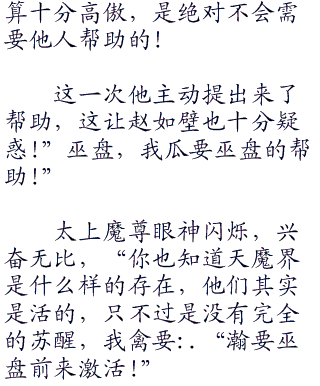 算十分高傲，是绝对不会需
要他人帮助的！
这一次他主动提出来了
帮助，这让赵如壁也十分疑
惑！”巫盘，我瓜要巫盘的帮
助！”
太上魔尊眼神闪烁，兴
奋无比，“你也知道天魔界
是什么样的存在，他们其实
是活的，只不过是没有完全
的苏醒，我禽要：．“瀚要巫
盘前来激活！”